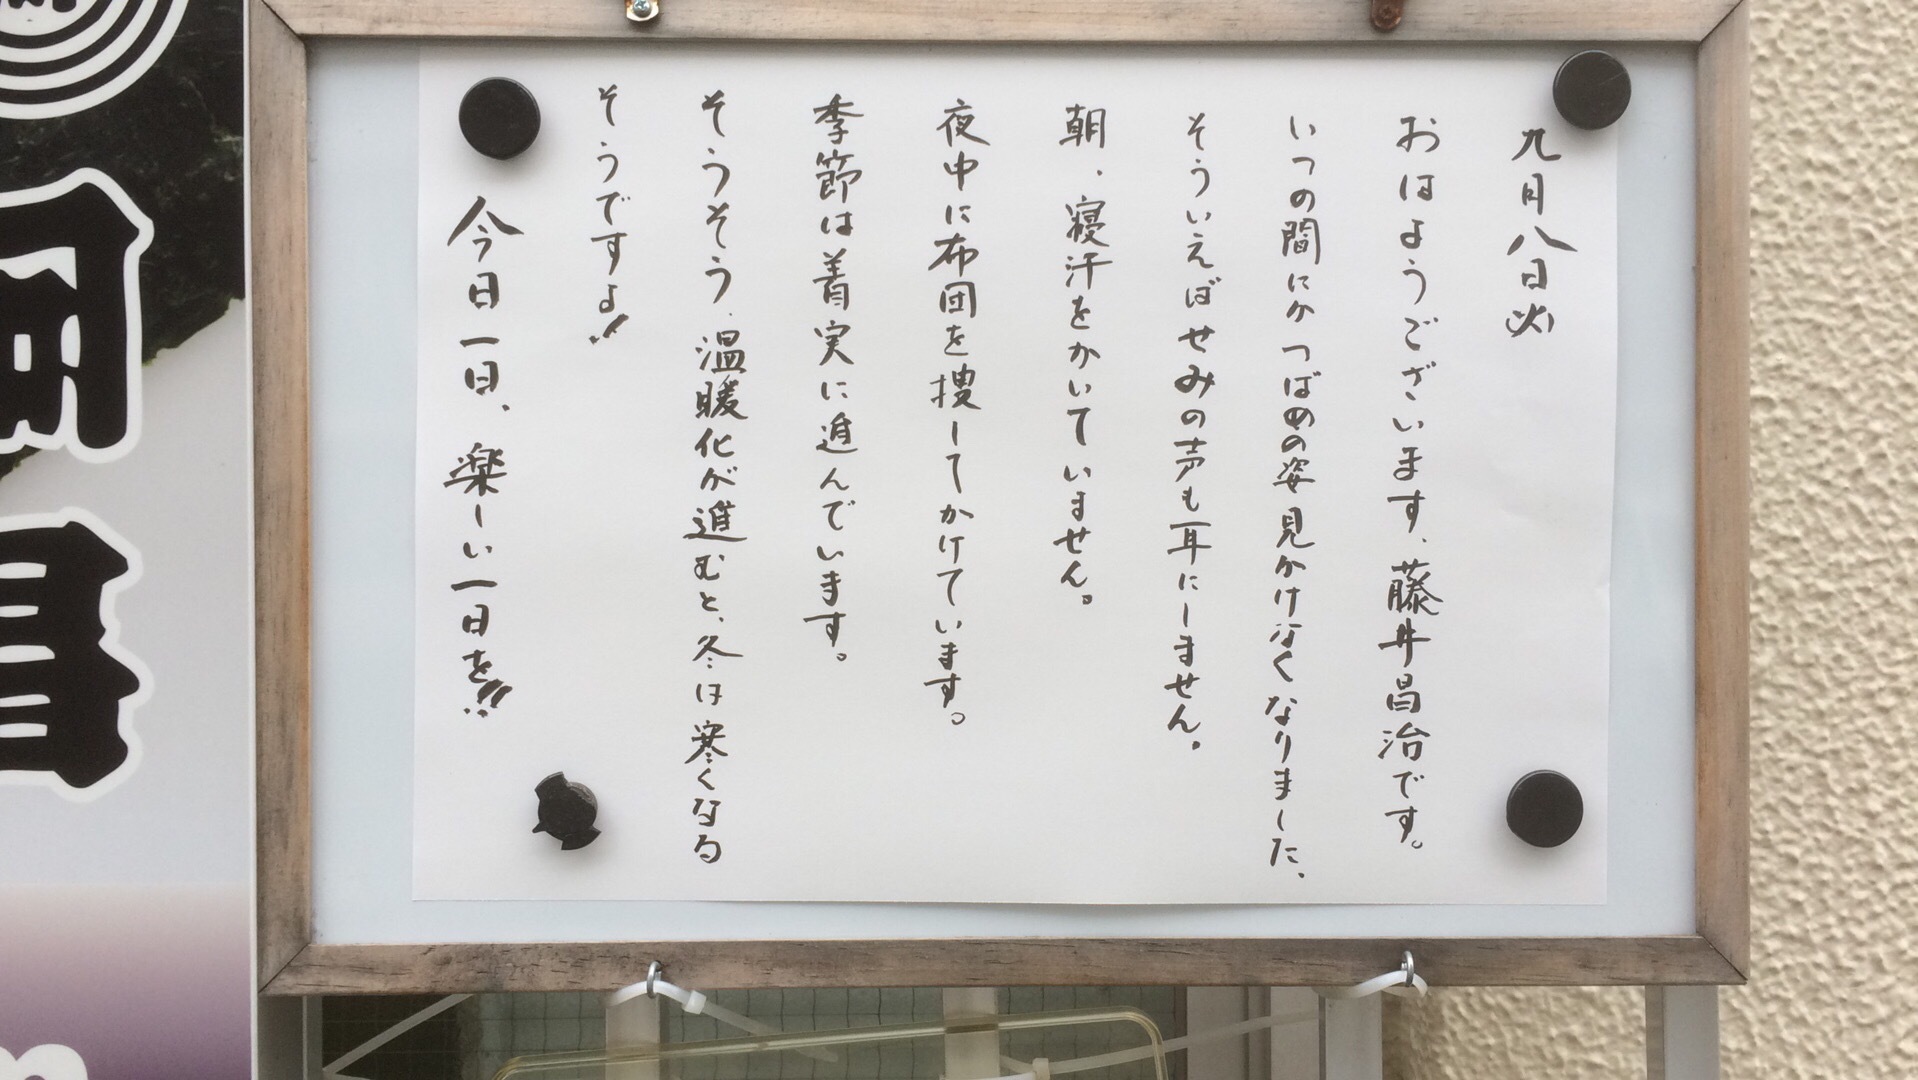 九月八日(火)
おはようございます、藤井昌治です。
いつの間にかつばめの姿見かけなくなりました、
そういえばせみの声も耳にしません。
朝、寝汗をかいていません。
夜中に布団を捜してかけています。
季節は着実に進んでいます。
そうそう、温暖化が進むと、冬は寒くなる
そうですよ!!
今日一日、楽しい一日を!!!